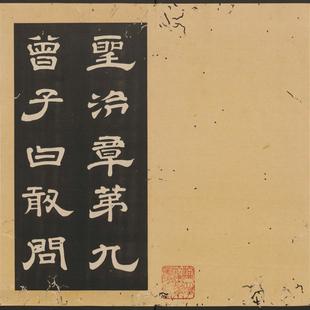 聖治章第九
曾子曰敢問